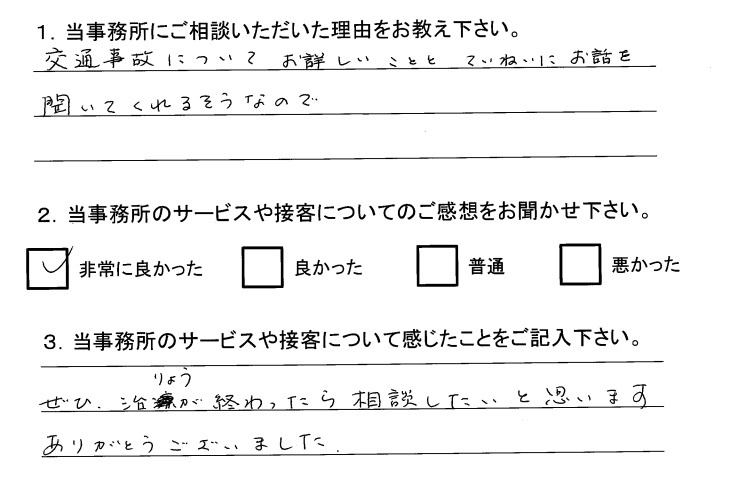 1. 当事務所にご相談いただいた理由をお教え下さい。
交通事故について お詳しいことと ていねいにお話を
聞いてくれるそうなので
2. 当事務所のサービスや接客についてのご感想をお聞かせ下さい。
非常に良かった 良かった 普通 悪かった
3. 当事務所のサービスや接客について感じたことをご記入下さい。
りょう
ぜひ、治療が終わったら相談したいと思います
ありがとうございました.